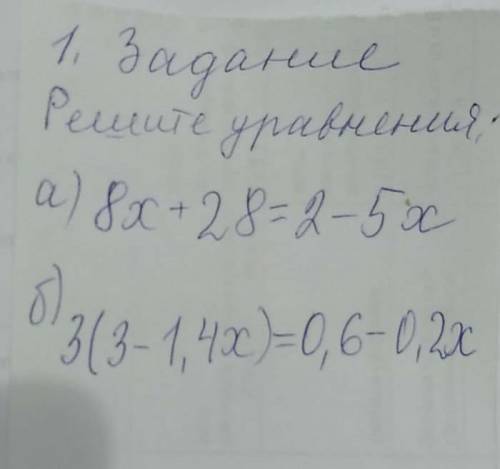 1. Задание
Решите уравнения:
а) 8x + 28 = 2 - 5x
б) 3(3 - 1,4x) = 0,6 - 0,2x